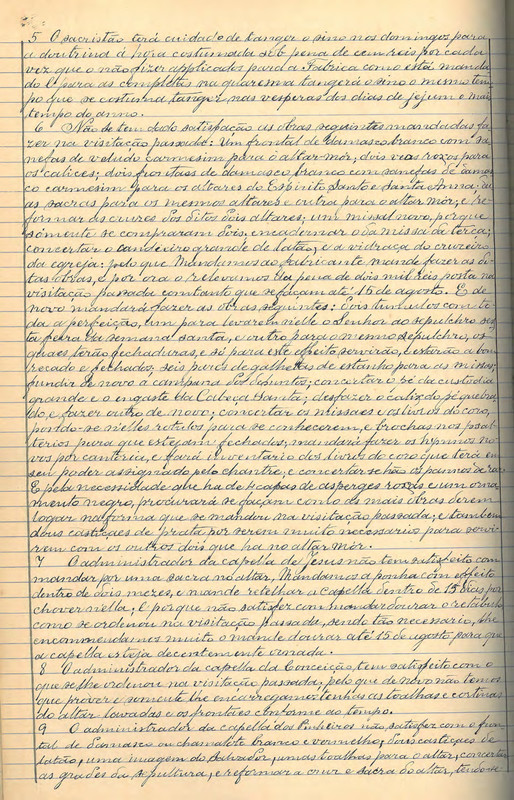 5 O sacristão terá cuidado de tanger o sino nos domingos para
a doutrina á hora costumada sob pena de cem reis por cada
vez que o não fizer applicados para a Fabrica como está manda
do E para as completas na quaresma tangerá o sino o mesmo tem
po que se costuma tanger, nas vesperas dos dias de jejum e mais
tempo do anno.
6 Não se tem dado satisfação as obras seguintes mandadas fa
zer na visitação passada: Um frontal de damasco branco com sa
nefas de veludo carmesim para o altar mór; dois veos roxos para
os calices; dois frontaes de damasco branco com sanefas de damas
co carmesim para os altares do Espirito Santo e Santa Anna; du
as sacras para os mesmos altares e outra para o altar mór; e re
formar as cruzes dos ditos dois altares; um missal novo, porque
sómente se compraram dois; encadernar o da missa da terça;
concertar o candieiro grande de latão, e a vidraça do cruzeiro
da egreja: pelo que Mandamos ao fabricante mande fazer as di
tas obras, e por ora o relevamos da pena de dois mil reis posta na
visitação passada comtanto que se façam até 15 de agosto. E de
novo mandará fazer as obras seguintes: Dois tumulos com to
da a perfeição, um para levarem nelle o Senhor ao sepulchro sex
ta feira da semana santa, e outro para o mesmo sepulchro, os
quaes terão fechaduras, e só para este effeito servirão, e estarão a bom
recado e fechados; seis pares de galhetas de estanho para as missas;
fundir de novo a campana dos defuntos; concertar o pé da custodia
grande e o engaste da Cabeça Santa; desfazer o calix do pé quebra
do, e fazer outro de novo; concertar os missaes e os livros do coro,
pondo-se nelles rotulos para se conhecerem, e brochas nos psal
terios para que estejam fechados; mandará fazer os hymnos no
vos por canteria, e fará inventario dos livros do coro que terá em
seu poder assignado pelo chantre; e concertar se hão os pannos de raz
E pela necessidade que ha de capas de asperges roxas e um orna
mento negro, procurará se façam como as mais obras derem
logar na forma que se mandou na visitação passada; e tambem
dous castiçaes de prata por serem muito necessarios para servi
rem com os outros dois que ha no altar mór.
7 O administrador da capella de Jesus não tem satisfeito com
mandar por uma sacra no altar, Mandamos a ponha com effeito
dentro de dois mezes, e mande retelhar a Capella dentro de 15 dias por
chover nella; E porque não satisfez com mandar dourar o retabulo
como se ordenou na visitação passada, sendo tão necessario, lhe
encommendamos muito o mande dourar até 15 de agosto para que
a capella esteja decentemente ornada.
8 O administrador da capella da Conceição, tem satisfeito com o
que se lhe ordenou na visitação passada, pelo que de novo não temos
que prover e somente lhe encarregamos tenha as toalhas e cortinas
do altar lavadas e os frontaes conforme ao tempo.
9 O administrador da capella dos Pinheiros não satisfez com o fron
tal de Damasco ou chamalote branco e vermelho; dois castiçaes de
latão, uma imagem do Salvador, umas toalhas para o altar, concertar
as grades da sepultura, e reformar a cruz e sacra do altar, tendo-se